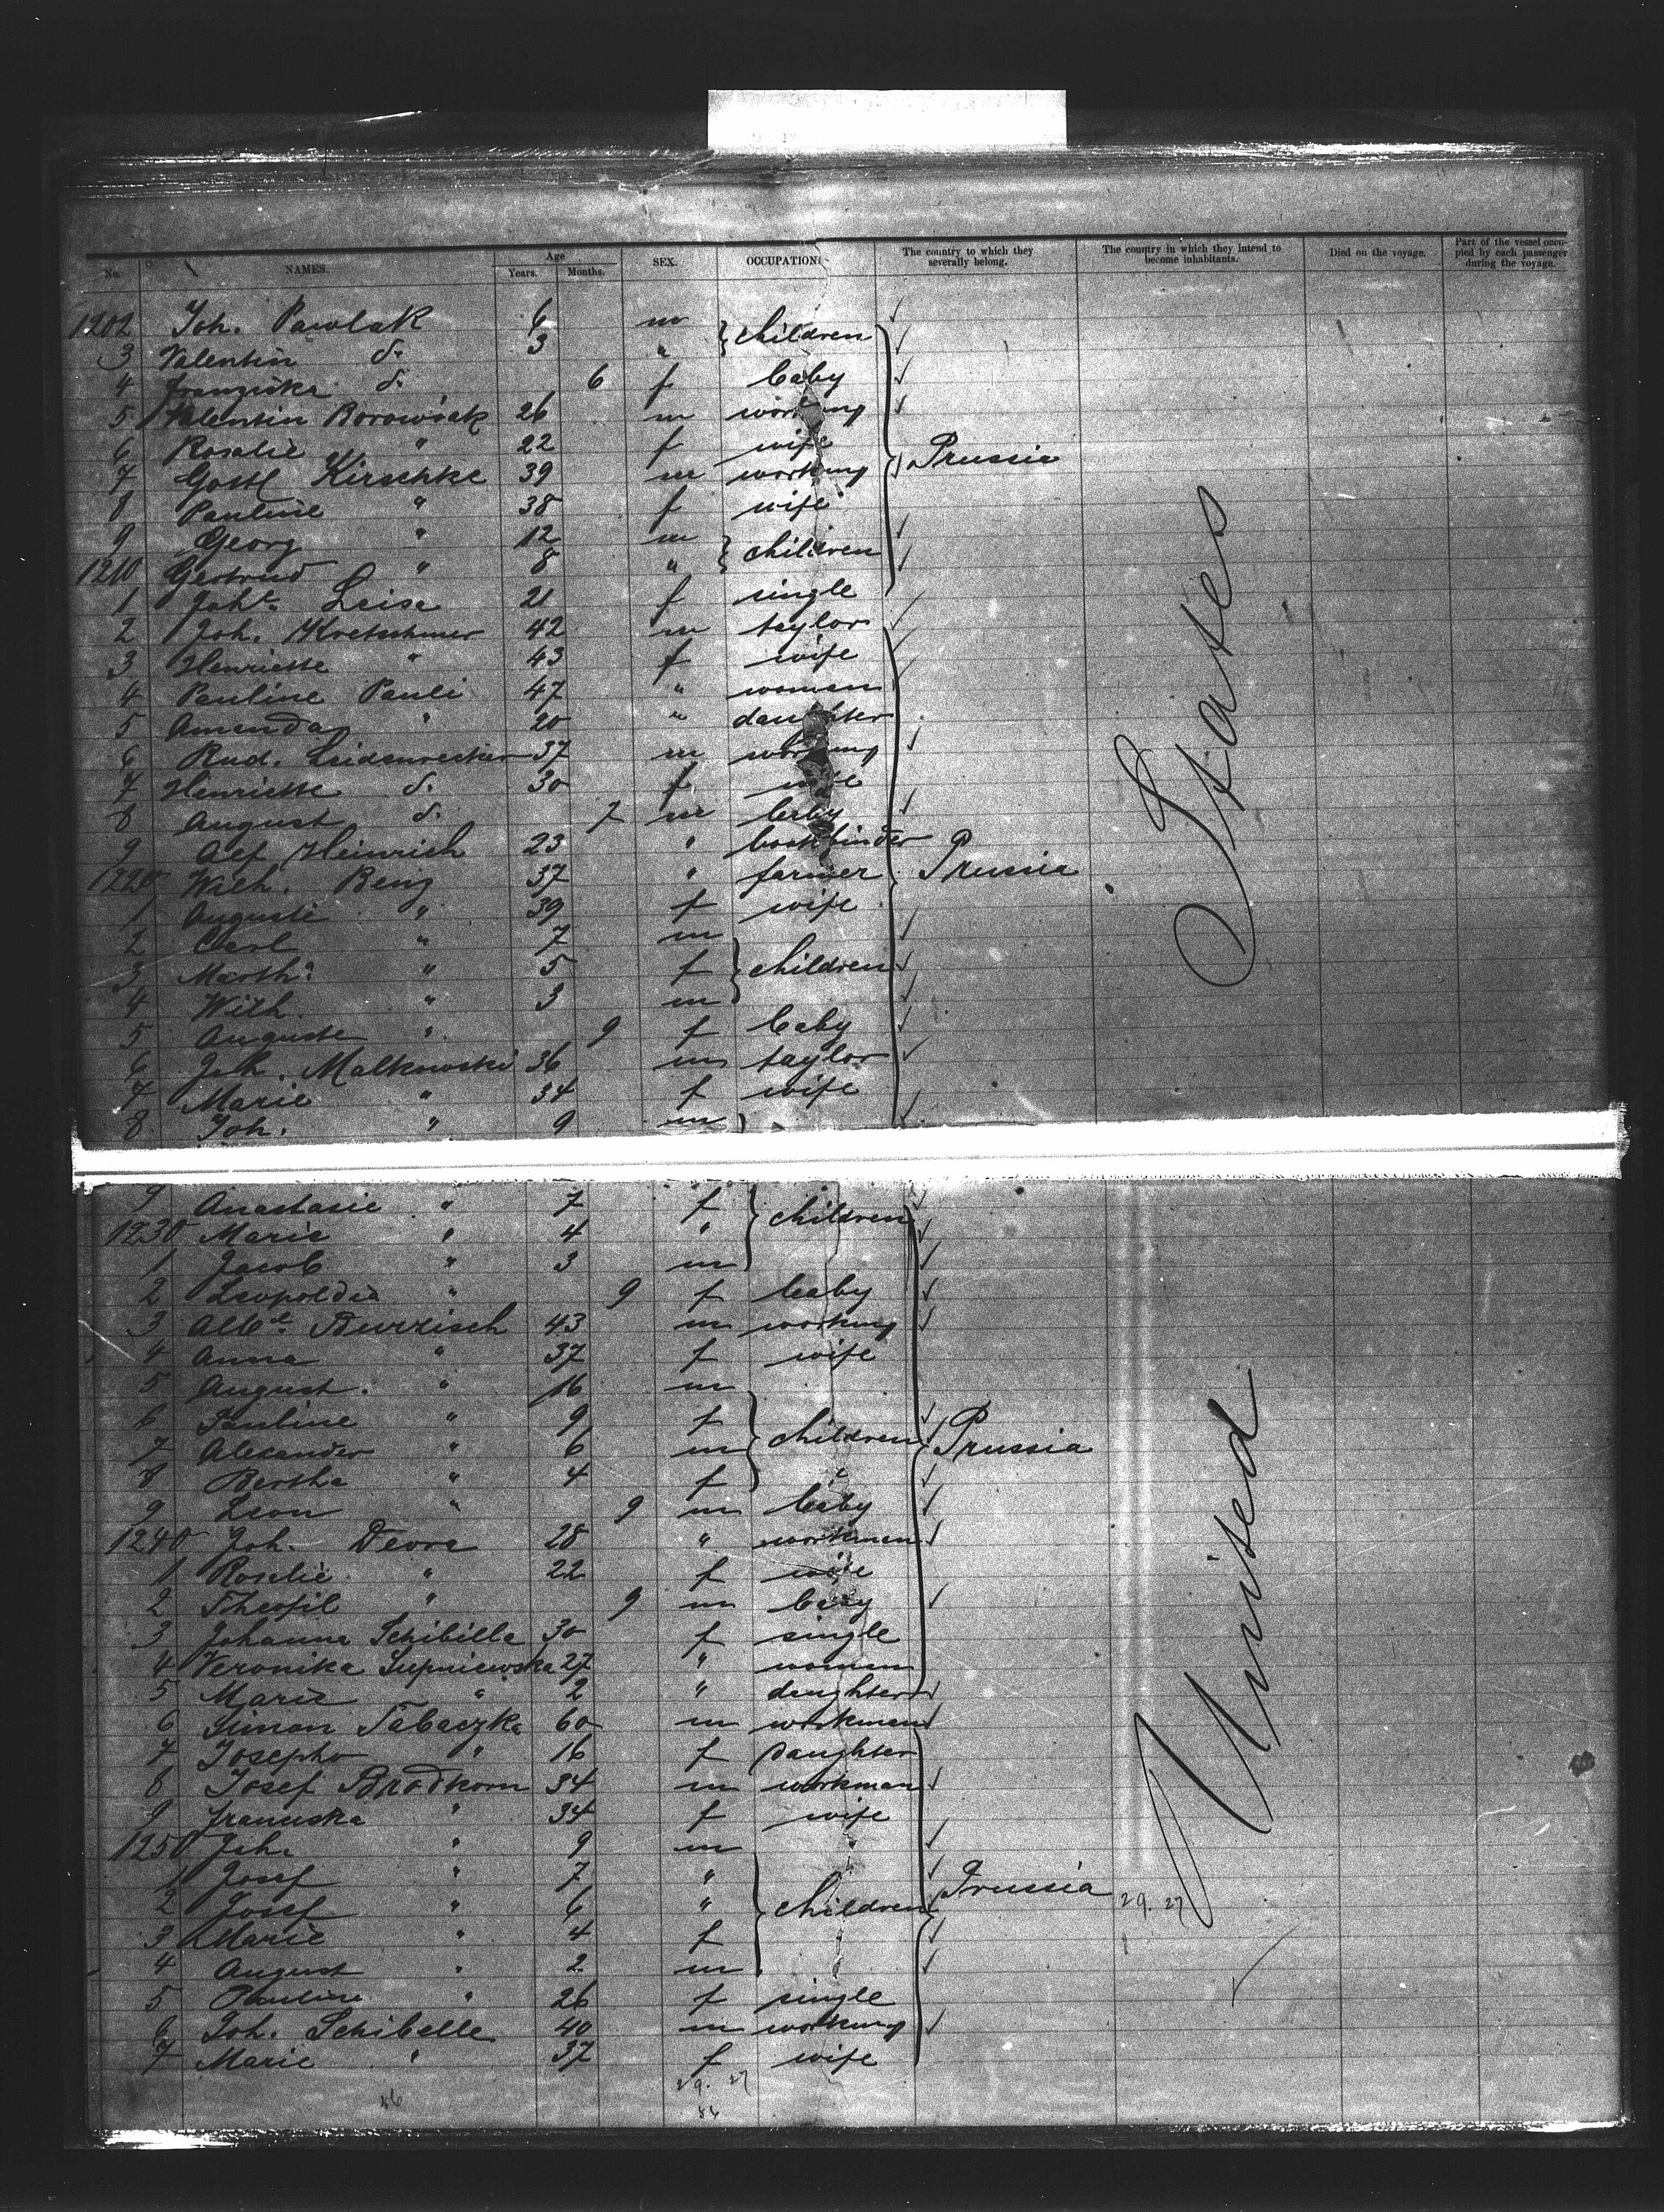 No. NAMES. Age Years. Months. SEX. OCCUPATION. The country to which they severally belong. The country in which they intend to become inhabitants. Died on the voyage. Part of the vessel occupied by each passenger during the voyage.
1202 Joh. Pawlak 6 m children
3 Valentin do 3 "
4 Franziska do 6 f baby
5 Valentin Borowiak 26 m working
6 Rosalie " 22 f wife
7 Gottl Kirschke 39 m working Prussia
8 Pauline " 38 f wife
9 Georg " 12 m children
1210 Gertrud " 8 "
1 Joh.e Leise 21 f single
2 Joh. Kretschmer 42 m taylor
3 Henriette " 43 f wife
4 Pauline Pauli 47 " woman
5 Amanda " 20 " daughter
6 Rud. 37 m working
7 Henriette do 30 f wife
8 August do 7 m baby
9 Alf Heinrich 23 " bookbinder
1220 Wilh. Benz 37 " farmer Prussia
1 Auguste " 39 f wife
2 Carl " 7 m
3 Marth.a " 5 f children
4 Wilh. " 3 m
5 Auguste " 9 f baby
6 Joh. Malkowski 36 m taylor
7 Marie " 34 f wife
8 Joh. " 9 m
9 Anastasie " 7 f children
1230 Marie " 4 "
1 Jacob " 3 m
2 Leopoldia " 9 f baby
3 Alb.t 43 m working
4 Anna " 37 f wife
5 August " 16 m
6 Pauline " 9 f
7 Alexander " 6 m children Prussia
8 Bertha " 4 f
9 Leon " 9 m baby
1240 Joh. Devra 28 " workman
1 Rosalie " 22 f wife
2 Theofil " 9 m baby
3 Johanna Schibilla 30 f single
4 Veronika Supniewska 27 " woman
5 Marie " 2 " daughter
6 Simon Tabaczka 60 m workman
7 Josepha " 16 f daughter
8 Josef Brodkorn 34 m workman
9 Franziska " 34 f wife
1250 Joh. " 9 m
1 Josef " 7 "
2 Josef " 6 " children Prussia 29. 27
3 Marie " 4 f
4 August " 2 m
5 Pauline " 26 f single
6 Joh. Schibelle 40 m working
7 Marie " 37 f wife
29. 27
56 56
United States